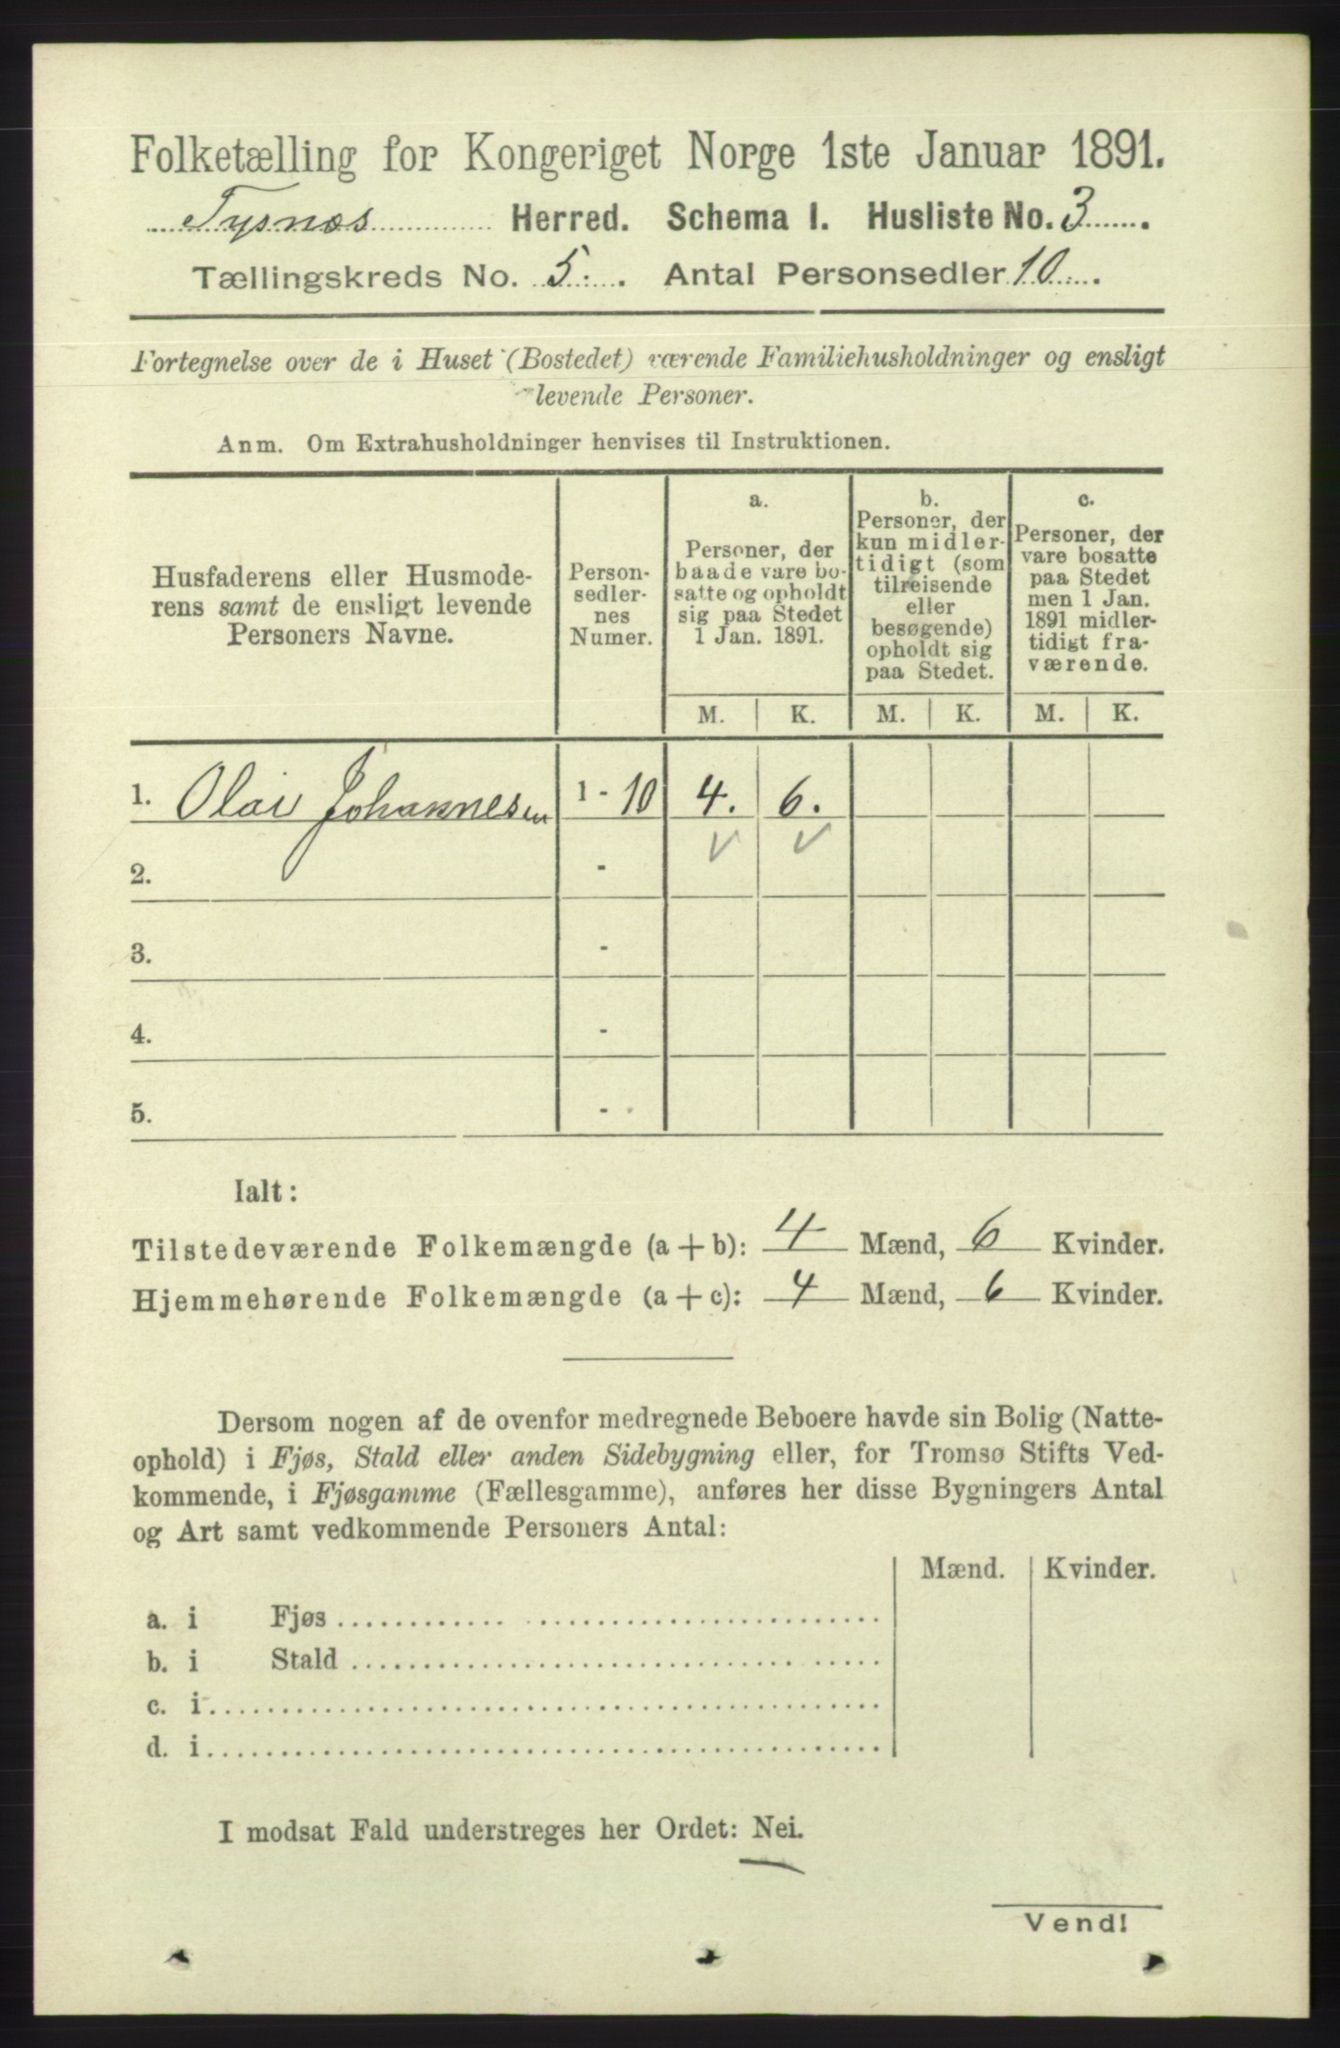 Folketælling for Kongeriget Norge 1ste Januar 1891.
Tysnæs Herred. Schema I. Husliste No. 3.
Tællingskreds No. 5. Antal Personsedler 10.
Fortegnelse over de i Huset (Bostedet) værende Familiehusholdninger og ensligt
levende Personer.
Anm. Om Extrahusholdninger henvises til Instruktionen.
Husfaderens eller Husmode-
rens samt de ensligt levende
Personers Navne.
Person-
sedler-
nes
Numer.
a.
Personer, der
baade vare bo-
satte og opholdt
sig paa Stedet
1 Jan. 1891.
b.
Personer, der
kun midler-
tidigt (som
tilreisende
eller
besøgende)
opholdt sig
paa Stedet.
c.
Personer, der
vare bosatte
paa Stedet
men 1 Jan.
1891 midler-
tidigt fra-
værende.
M. K. M. K. M. K.
1. Olai Johannesen 1 - 10 4. 6.
2. -
3. -
4. -
5. -
Ialt:
Tilstedeværende Folkemængde (a + b): 4 Mænd, 6 Kvinder.
Hjemmehørende Folkemængde (a + c): 4 Mænd, 6 Kvinder.
Dersom nogen af de ovenfor medregnede Beboere havde sin Bolig (Natte-
ophold) i Fjøs, Stald eller anden Sidebygning eller, for Tromsø Stifts Ved-
kommende, i Fjøsgamme (Fællesgamme), anføres her disse Bygningers Antal
og Art samt vedkommende Personers Antal:
Mænd. Kvinder.
a. i Fjøs
b. i Stald
c. i
d. i
I modsat Fald understreges her Ordet: Nei.
Vend!